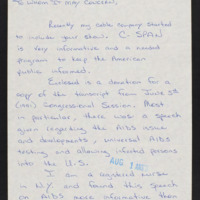 To Whom It May Concern,
Recently my cable company started
to include your show. C. SPAN
is very informative and a needed
program to keep the American
public informed.
Enclosed is a donation for a
copy of the transcript from June 5th
(1987) Congressional Session. Most
in particular, there was a speech
given regarding the AIDS issue
and developments, universal AIDS
testing and allowing infected persons
into the U.S.
AUG 1987
I am a registered nurse
in N.Y. and found this speech
on AIDS more informative than